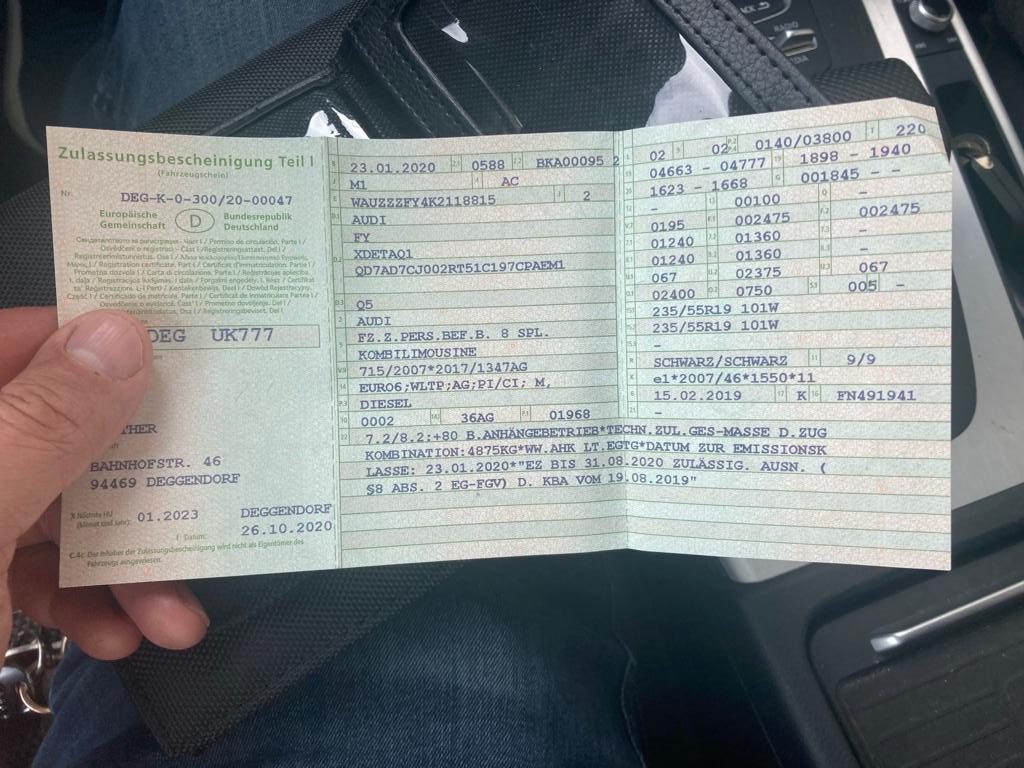 Zulassungsbescheinigung Teil I
(Fahrzeugschein)
Nr. DEG-K-0-300/20-00047
Europäische Gemeinschaft
D
Bundesrepublik Deutschland
DEG UK777
THER
BAHNHOFSTR. 46
94469 DEGGENDORF
X Nächste HU (Monat und Jahr): 01.2023
DEGGENDORF
I Datum: 26.10.2020
C.4c Der Inhaber der Zulassungsbescheinigung wird nicht als Eigentümer des Fahrzeugs ausgewiesen.
B 23.01.2020 2.1 0588 2.2 BKA00095 2
J M1 4 AC
E WAUZZZFY4K2118815 3 2
D.1 AUDI
FY
D.2 XDETAQ1
QD7AD7CJ002RT51C197CPAEM1
D.3 Q5
2 AUDI
5 FZ.Z.PERS.BEF.B. 8 SPL.
KOMBILIMOUSINE
V.9 715/2007*2017/1347AG
14 EURO6;WLTP;AG;PI/CI; M,
P.3 DIESEL
10 0002 14.1 36AG P.1 01968
22 7.2/8.2:+80 B.ANHÄNGEBETRIEB*TECHN.ZUL.GES-MASSE D.ZUG
KOMBINATION:4875KG*WW.AHK LT.EGTG*DATUM ZUR EMISSIONSK
LASSE: 23.01.2020*"EZ BIS 31.08.2020 ZULÄSSIG. AUSN. (
§8 ABS. 2 EG-FGV) D. KBA VOM 19.08.2019"
L 02 9 02 P.2 P.4 0140/03800 T 220
18 04663 - 04777 19 1898 - 1940
20 1623 - 1668 G 001845 - -
12 - 13 00100 Q -
V.7 0195 F.1 002475 F.2 002475
7.1 01240 7.2 01360 7.3 -
8.1 01240 8.2 01360 8.3 -
U.1 067 U.2 02375 U.3 067
O.1 02400 O.2 0750 S.1 005 -
15.1 235/55R19 101W
15.2 235/55R19 101W
15.3 -
R SCHWARZ/SCHWARZ 11 9/9
K e1*2007/46*1550*11
6 15.02.2019 17 K 16 FN491941
21 -